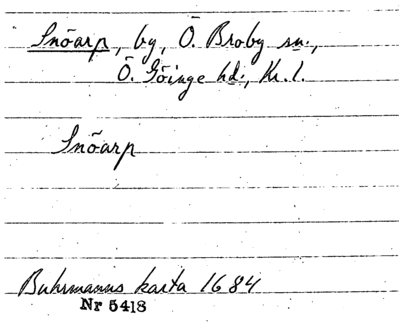 Snöarp, by, Ö. Broby sn.,
Ö. Göinge hd., Kr. l.
Snöarp
Buhrmanns karta 1684
Nr 5418